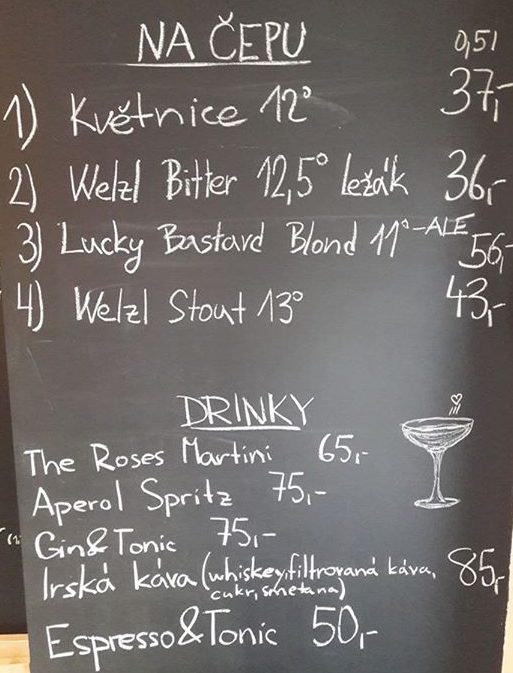 NA ČEPU 0,5l
1) Květnice 12° 37,-
2) Welzl Bitter 12,5° ležák 36,-
3) Lucky Bastard Blond 11°-ALE 56,-
4) Welzl Stout 13° 43,-
DRINKY
The Roses Martini 65,-
Aperol Spritz 75,-
Gin&Tonic 75,-
Irská káva (whiskey, filtrovaná káva, 85,-
cukr, smetana)
Espresso&Tonic 50,-